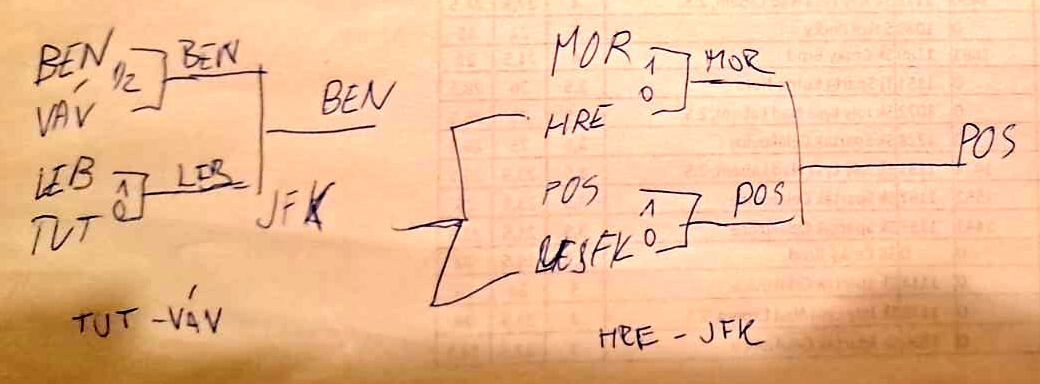 BEN
VÁV
1/2
BEN
LEB
TUT
1
0
LEB
BEN
JFK
TUT - VÁV
MOR
HRE
1
0
MOR
POS
JFK
1
0
POS
POS
HRE - JFK